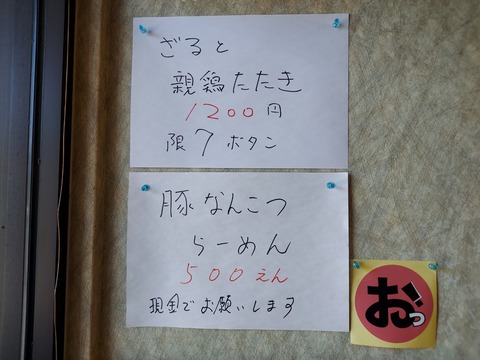 ざると
親鶏たたき
1200円
限7ボタン
豚なんこつ
らーめん
500えん
現金でお願いします
おっ